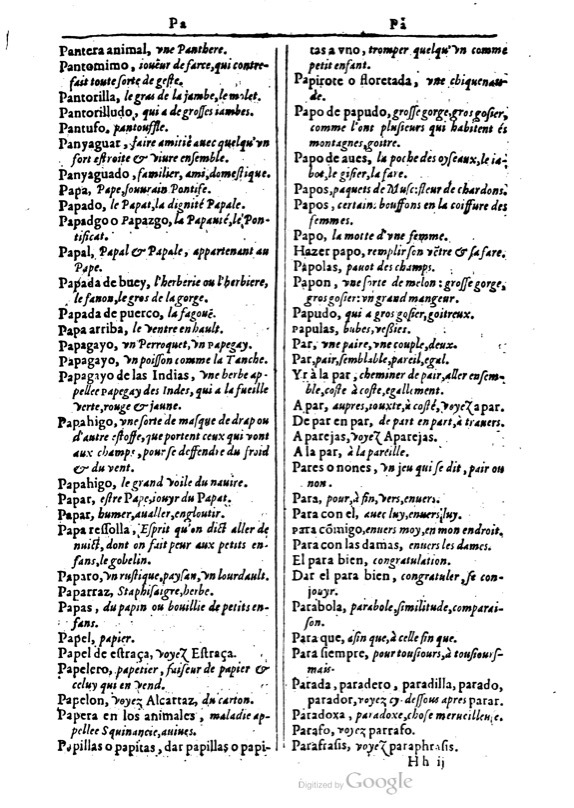 Pa
Pantera animal, vne Panthere.
Pantomimo, ioüeur de farce, qui contre-
fait toute sorte de geste.
Pantorilla, le gras de la jambe, le molet.
Pantorilludo, qui a de grosses iambes.
Pantufo, pantouffle.
Panyaguar, faire amitié auec quelqu'vn
fort estroite & viure ensemble.
Panyaguado, familier, ami, domestique.
Papa, Pape, souuerain Pontife.
Papado, le Papat, la dignité Papale.
Papadgo o Papazgo, la Papauté, le Pon-
tificat.
Papal, Papal & Papale, appartenant au
Pape.
Papada de buey, l'herberie ou l'herbiere,
le fanon, le gros de la gorge.
Papada de puerco, la fagouë.
Papa arriba, le ventre en hault.
Papagayo, vn Perroquet, vn Papegay.
Papagayo, vn poisson comme la Tanche.
Papagayo de las Indias, vne herbe ap-
pellee papegay des Indes, qui a la fueille
verte, rouge & jaune.
Papahigo, vne sorte de masque de drap ou
d'autre estoffe, que portent ceux qui vont
aux champs, pour se deffendre du froid
& du vent.
Papahigo, le grand voile du nauire.
Papar, estre Pape, iouyr du Papat.
Papar, humer, aualler, engloutir.
Papa ressolla, Esprit qu'on dict aller de
nuict, dont on fait peur aux petits en-
fans, le gobelin.
Paparo, vn rustique, paysan, vn lourdault.
Paparraz, Staphisaigre, herbe.
Papas, du papin ou bouillie de petits en-
fans.
Papel, papier.
Papel de estraça, voyez Estraça.
Papelero, papetier, faiseur de papier &
celuy qui en vend.
Papelon, voyez Alcartaz, du carton.
Papera en los animales, maladie ap-
pellee Squinancie, auiues.
Papillas o papitas, dar papillas o papi-
Pà
tas a vno, tromper quelqu'vn comme
petit enfant.
Papirote o floretada, vne chiquenau-
de.
Papo de papudo, grosse gorge, gros gosier,
comme l'ont plusieurs qui habitent és
montagnes, goitre.
Papo de aues, la poche des oyseaux, le ia-
bot, le gisier, la fare.
Papos, paquets de Musc: fleur de chardons.
Papos, certains bouffons en la coiffure des
femmes.
Papo, la motte d'vne femme.
Hazer papo, remplir son vẽtre & sa fare.
Papolas, pauot des champs.
Papon, vne sorte de melon: grosse gorge,
gros gosier: vn grand mangeur.
Papudo, qui a gros gosier, goitreux.
Papulas, bubes, vessies.
Par, vne paire, vne couple, deux.
Par, pair, semblable, pareil, egal.
Yr à la par, cheminer de pair, aller ensem-
ble, coste à coste, egallement.
A par, aupres, iouxte, à costé, voyez apar.
De par en par, de part en part, à trauers.
A parejas, voyez Aparejas.
A la par, à la pareille.
Pares o nones, vn jeu qui se dit, pair ou
non.
Para, pour, à fin, vers, enuers.
Para con el, auec luy, enuers luy.
Para cõmigo, enuers moy, en mon endroit.
Para con las damas, enuers les dames.
El para bien, congratulation.
Dar el para bien, congratuler, se con-
jouyr.
Parabola, parabole, similitude, comparai-
son.
Para que, afin que, à celle fin que.
Para siempre, pour tousiours, à tousiours-
mais.
Parada, paradero, paradilla, parado,
parador, voyez cy-dessous apres parar.
Paradoxa, paradoxe, chose merueilleuse.
Parafo, voyez parrafo.
Parafrasis, voyez paraphrasis.
Hh ij
Digitized by Google